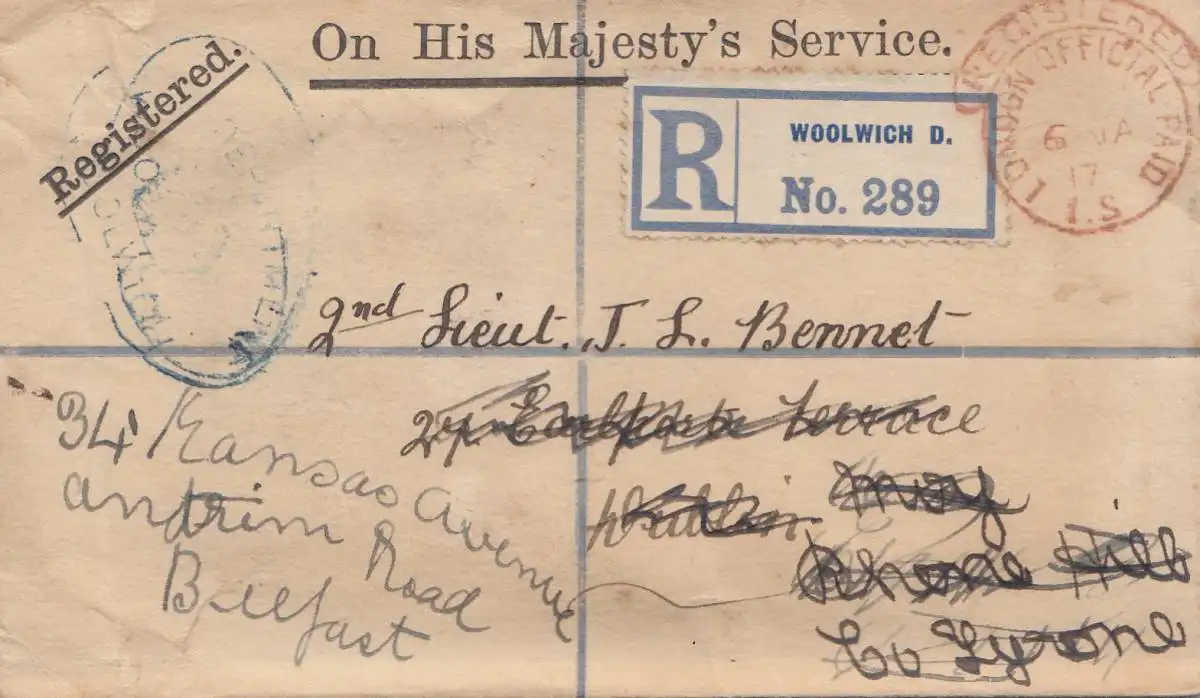 On His Majesty's Service.
Registered.
R
WOOLWICH D.
No. 289
REGISTERED
LONDON OFFICIAL PAID
6 JA
17
I.S
2nd Lieut. J. L. Bennet
Terrace
Dublin
Moy
Rhone Hill
Co Tyrone
34 Kansas Avenue
Antrim Road
Belfast